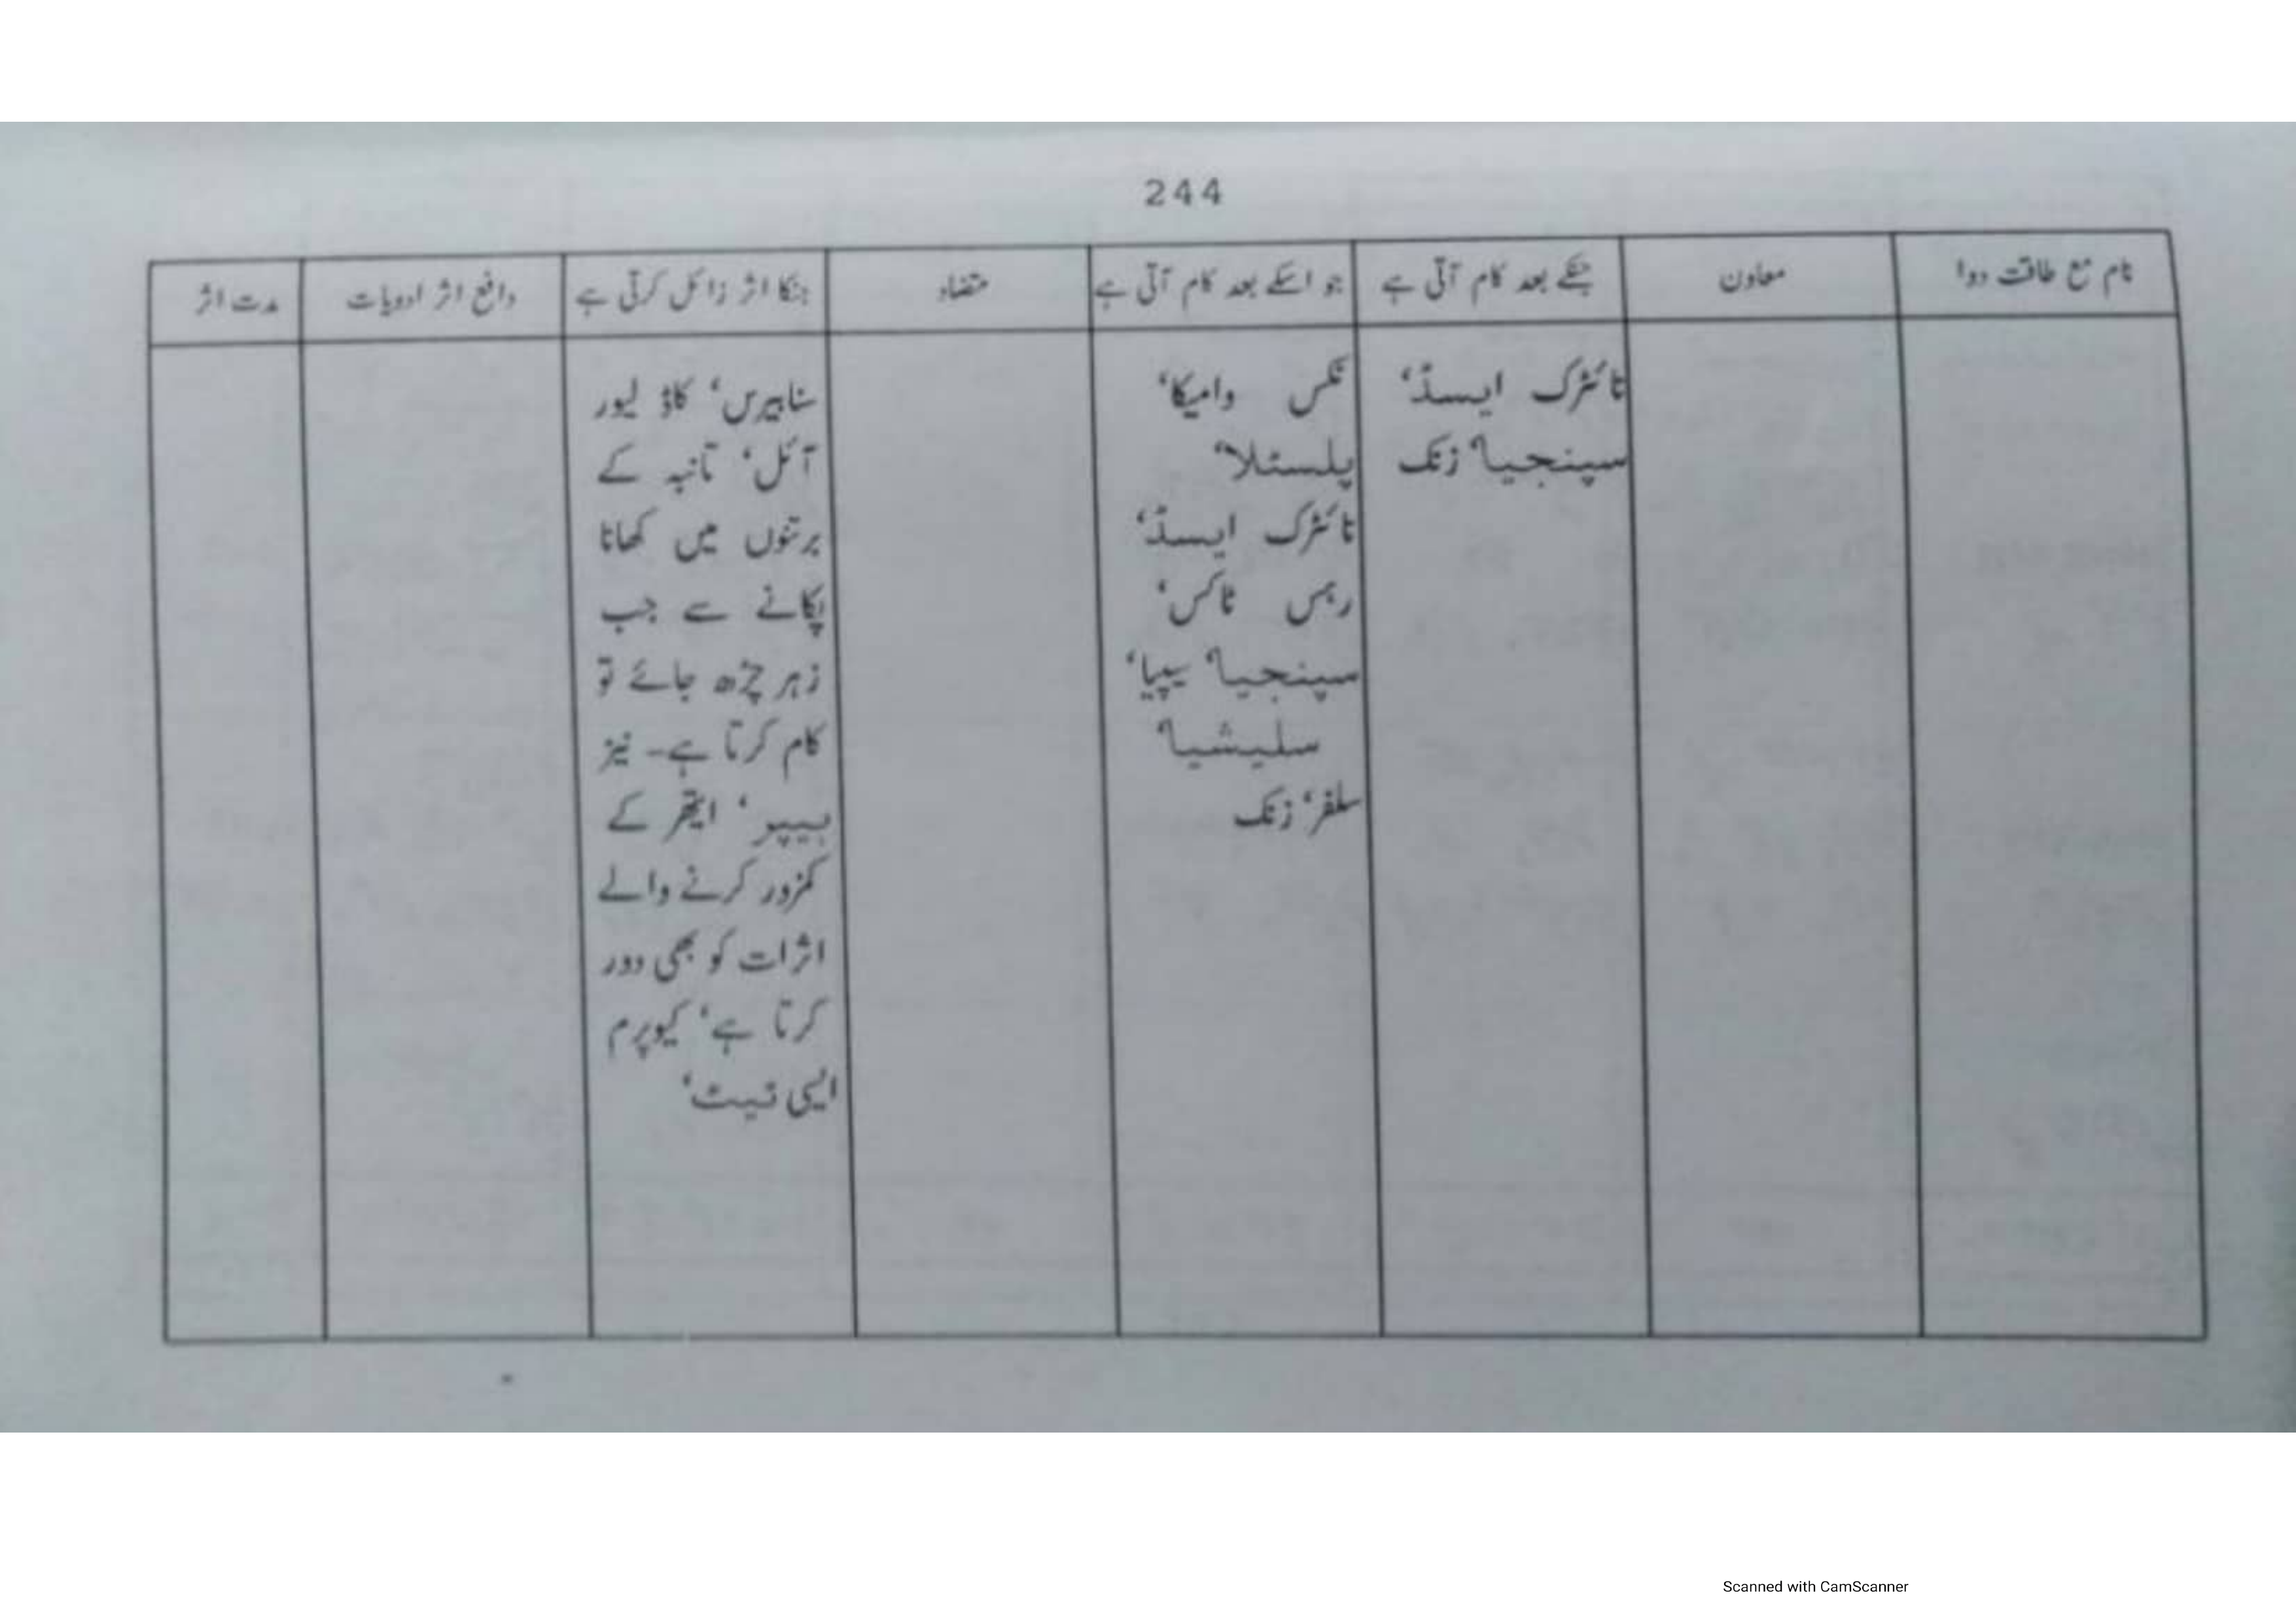 244
نام مع طاقت دوا
معاون
جنکے بعد کام آتی ہے
جو اسکے بعد کام آتی ہے
متضاد
جنکا اثر زائل کرتی ہے
دافع اثر ادویات
مدت اثر
نائٹرک ایسڈ،
سپنجیا، زنک
نکس وامیکا،
پلسٹلا،
نائٹرک ایسڈ،
رہس ٹاکس،
سپنجیا، سیپیا،
سلیشیا،
سلفر، زنک
سنابیرس، کاڈ لیور
آئل، تانبہ کے
برتنوں میں کھانا
پکانے سے جب
زہر چڑھ جائے تو
کام کرتا ہے۔ نیز
ہیپر، ایتھر کے
کمزور کرنے والے
اثرات کو بھی دور
کرتا ہے، کیوپرم
ایسی ٹیٹ،
Scanned with CamScanner